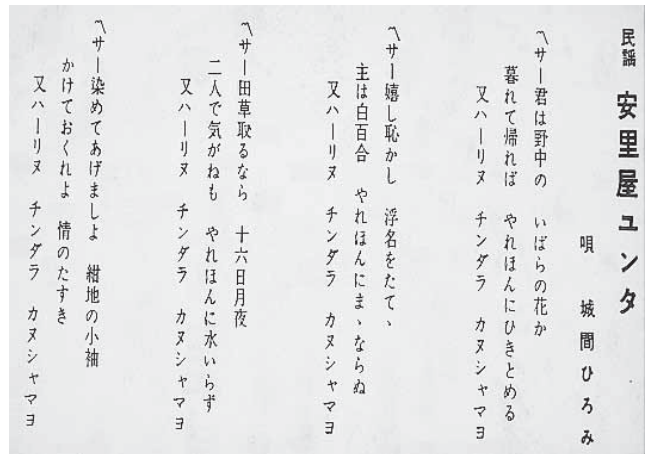 民謡 安里屋ユンタ
唄 城間ひろみ
〽サー君は野中の いばらの花か
暮れて帰れば やれほんにひきとめる
又ハーリヌ チンダラ カヌシャマヨ
〽サー嬉し恥かし 浮名をたてゝ
主は白百合 やれほんにまゝならぬ
又ハーリヌ チンダラ カヌシャマヨ
〽サー田草取るなら 十六日月夜
二人で気がねも やれほんに水いらず
又ハーリヌ チンダラ カヌシャマヨ
〽サー染めてあげましよ 紺地の小袖
かけておくれよ 情のたすき
又ハーリヌ チンダラ カヌシャマヨ